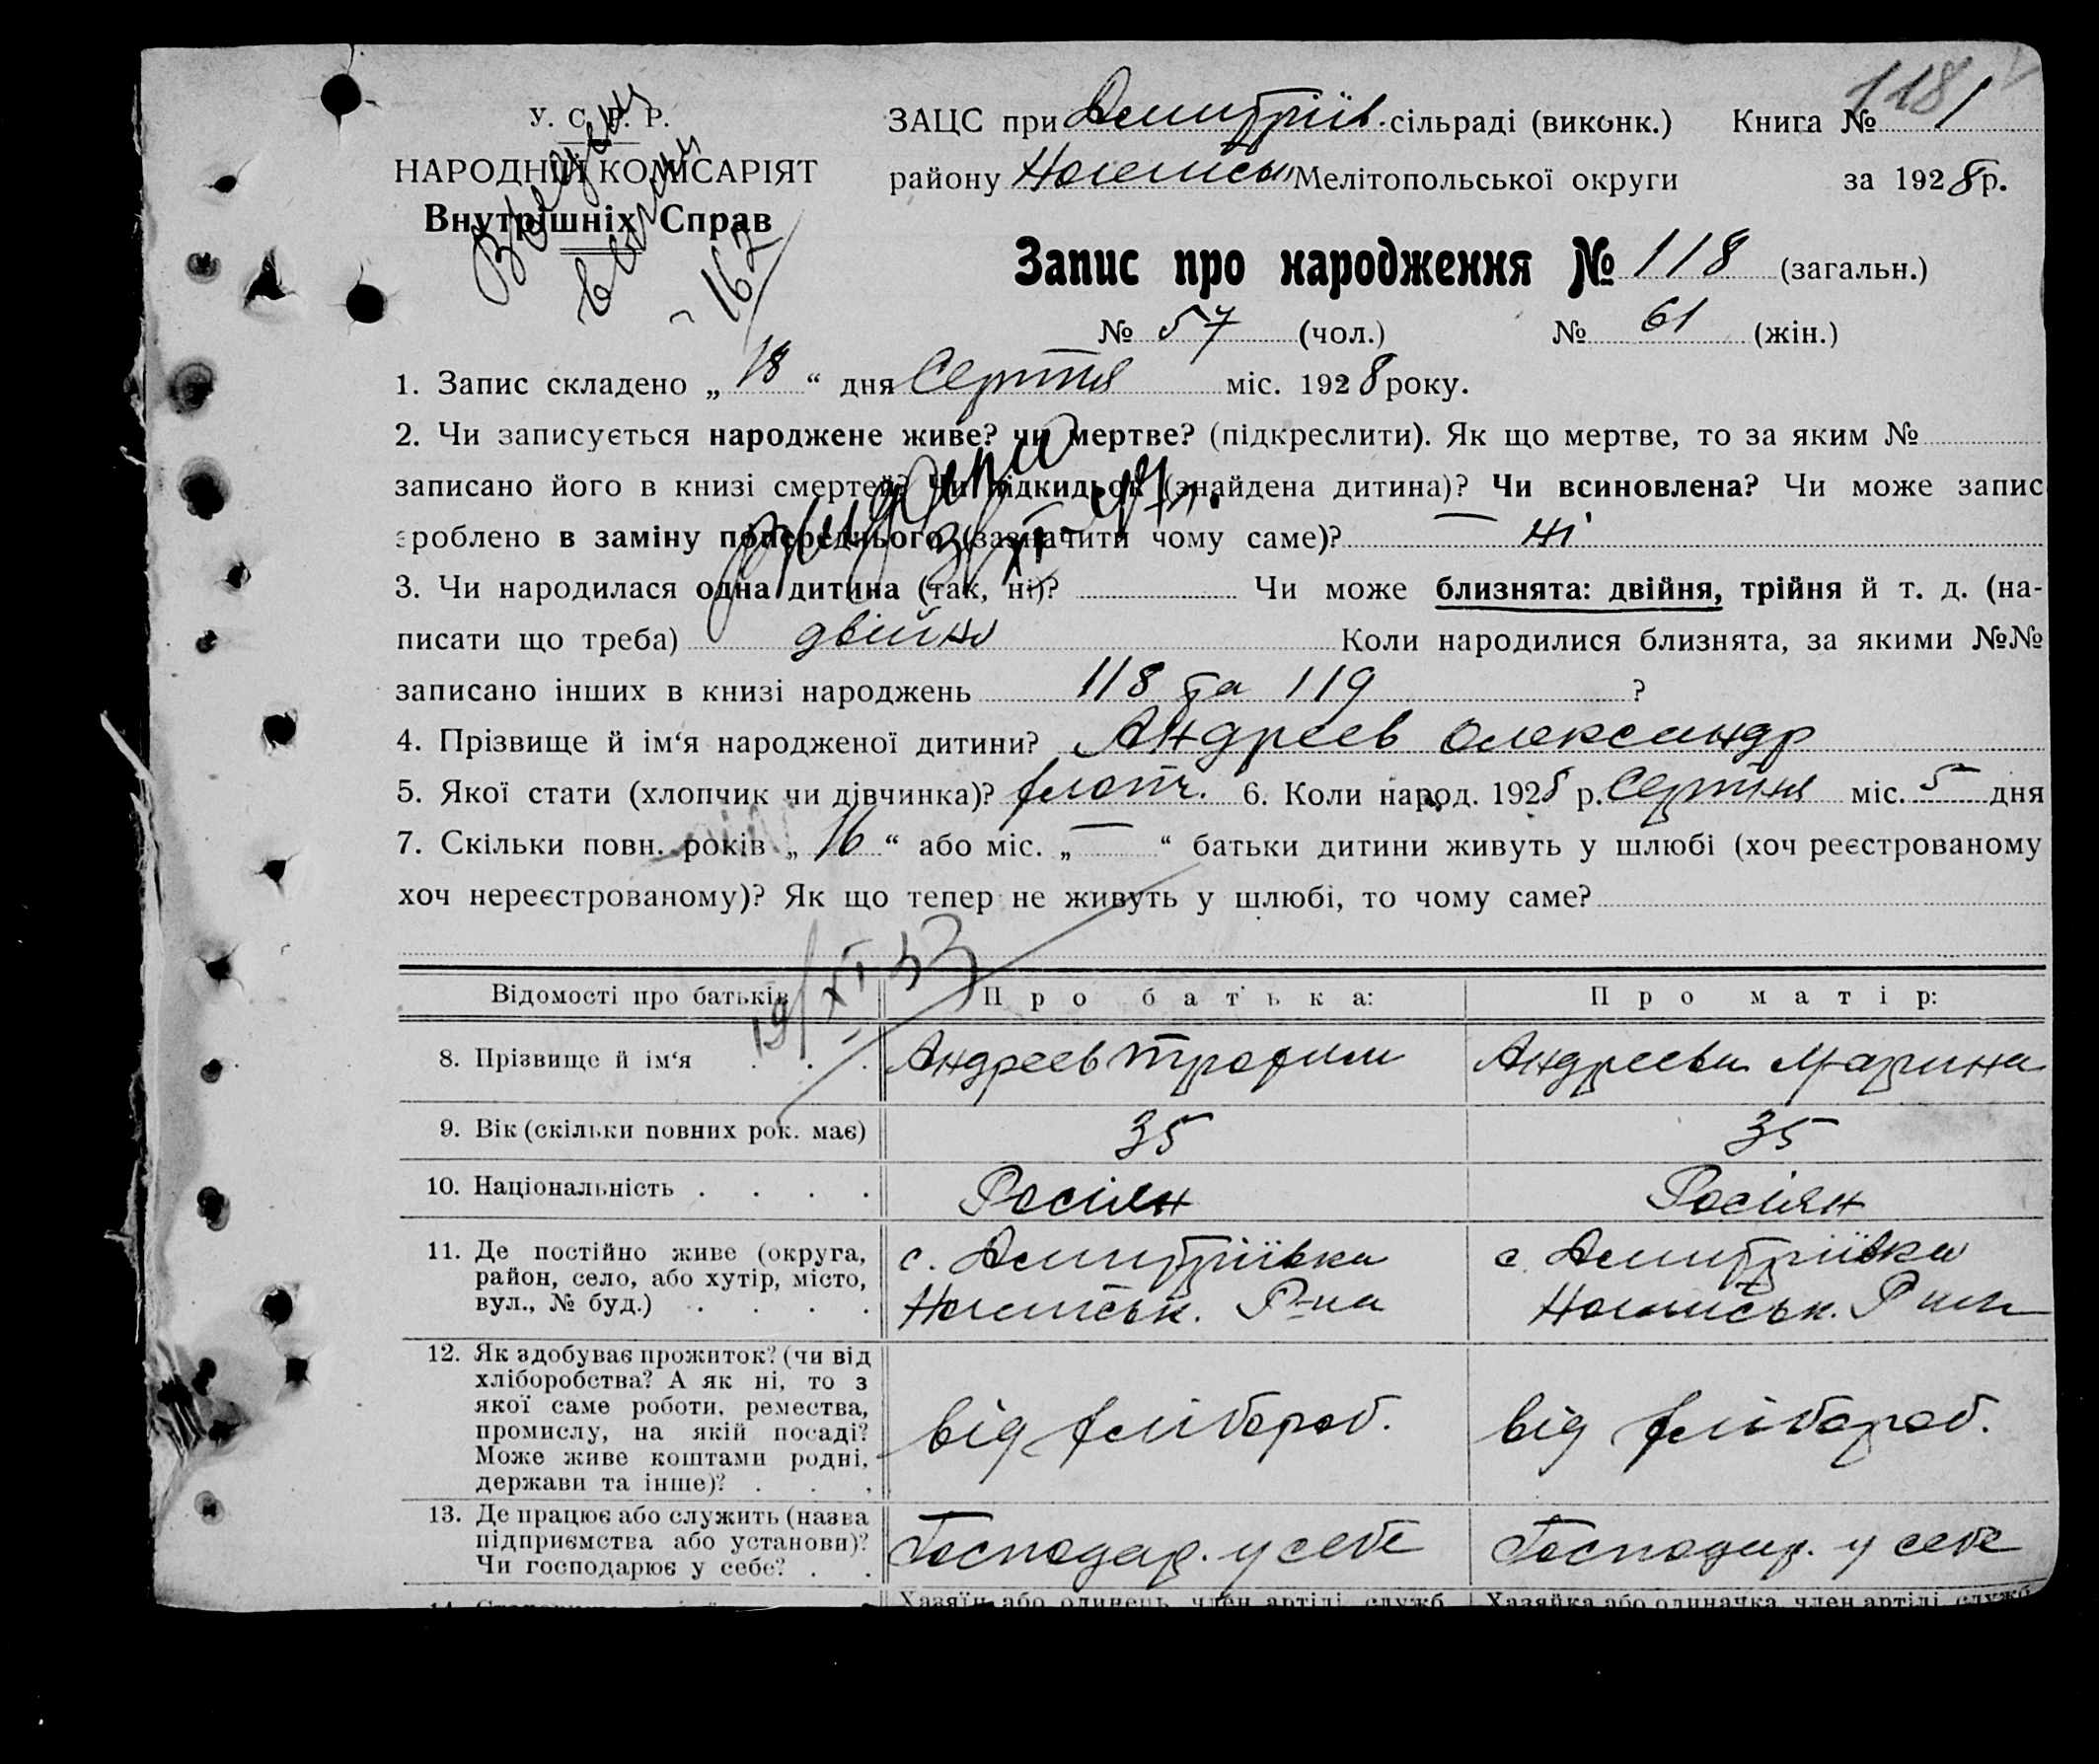 118
У. С. Р. Р.
НАРОДНІЙ КОМІСАРІЯТ
Внутрішніх Справ
162
ЗАЦС при Дмитріїв. сільраді (виконк.) Книга № 1
району Мелітопольської округи за 1928 р.
Запис про народження № 118 (загальн.)
№ 57 (чол.) № 61 (жін.)
1. Запис складено „ 18 “ дня Серпня міс. 1928 року.
2. Чи записується народжене живе? чи мертве? (підкреслити). Як що мертве, то за яким №
записано його в книзі смертей? Чи підкидьок (знайдена дитина)? Чи всиновлена? Чи може запис
зроблено в заміну попереднього (зазначити чому саме)? — ні
3. Чи народилася одна дитина (так, ні)? Чи може близнята: двійня, трійня й т. д. (на-
писати що треба) двійня Коли народилися близнята, за якими №№
записано інших в книзі народжень 118 та 119 ?
4. Прізвище й ім‘я народженої дитини? Андреев Олександр
5. Якої стати (хлопчик чи дівчинка)? хлопч. 6. Коли народ. 1928 р. Серпня міс. 5 дня
7. Скільки повн. років „ 16 “ або міс. „ — “ батьки дитини живуть у шлюбі (хоч реєстрованому
хоч нереєстрованому)? Як що тепер не живуть у шлюбі, то чому саме?
19/XI 33
Відомості про батьків Про батька: Про матір:
8. Прізвище й ім‘я . . . Андреев Трофим Андреева Марина
9. Вік (скільки повних рок. має) 35 35
10. Національність . . . . Росіян Росіян
11. Де постійно живе (округа, с. Дмитріївка с. Дмитріївка
район, село, або хутір, місто, Р-на Р-на
вул., № буд.) . . . .
12. Як здобуває прожиток? (чи від
хліборобства? А як ні, то з
якої саме роботи, ремества,
промислу, на якій посаді? від хлібороб. від хлібороб.
Може живе коштами родні,
держави та інше)? . . .
13. Де працює або служить (назва
підприємства або установи)? Господар. у себе Господар. у себе
Чи господарює у себе? . .
Хазяїн або одинець, член артілі, служб. Хазяйка або одиначка, член артілі, служб.